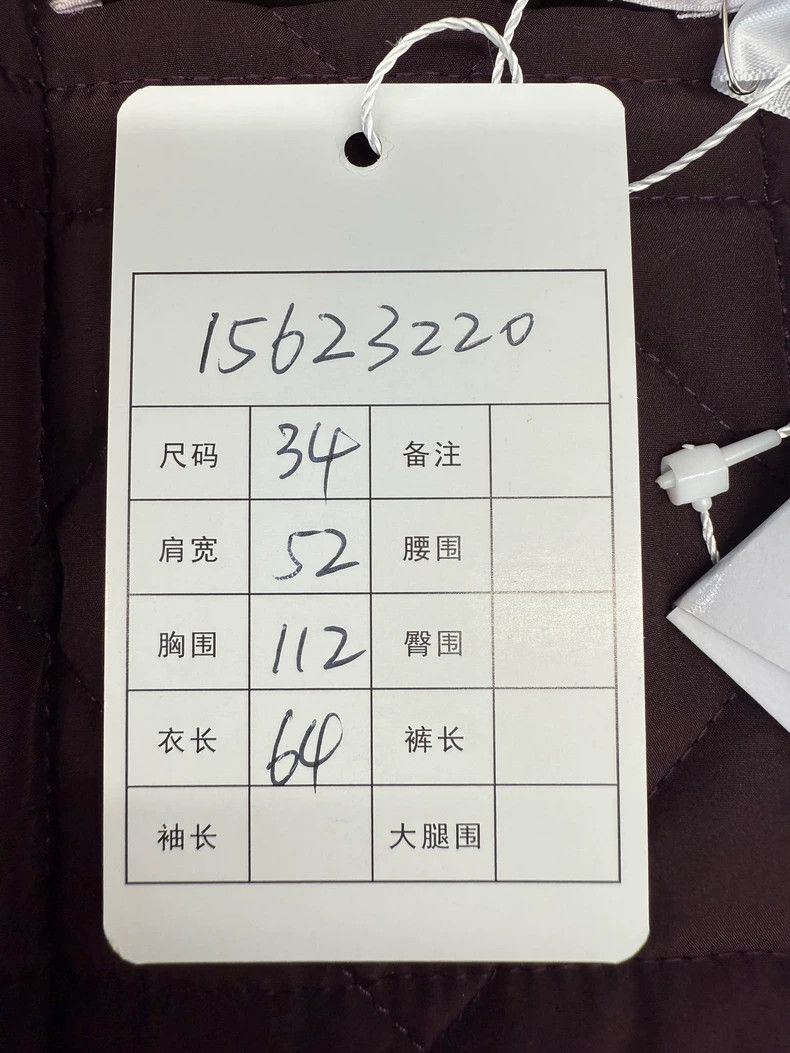 15623220
尺码 34 备注
肩宽 52 腰围
胸围 112 臀围
衣长 64 裤长
袖长 大腿围